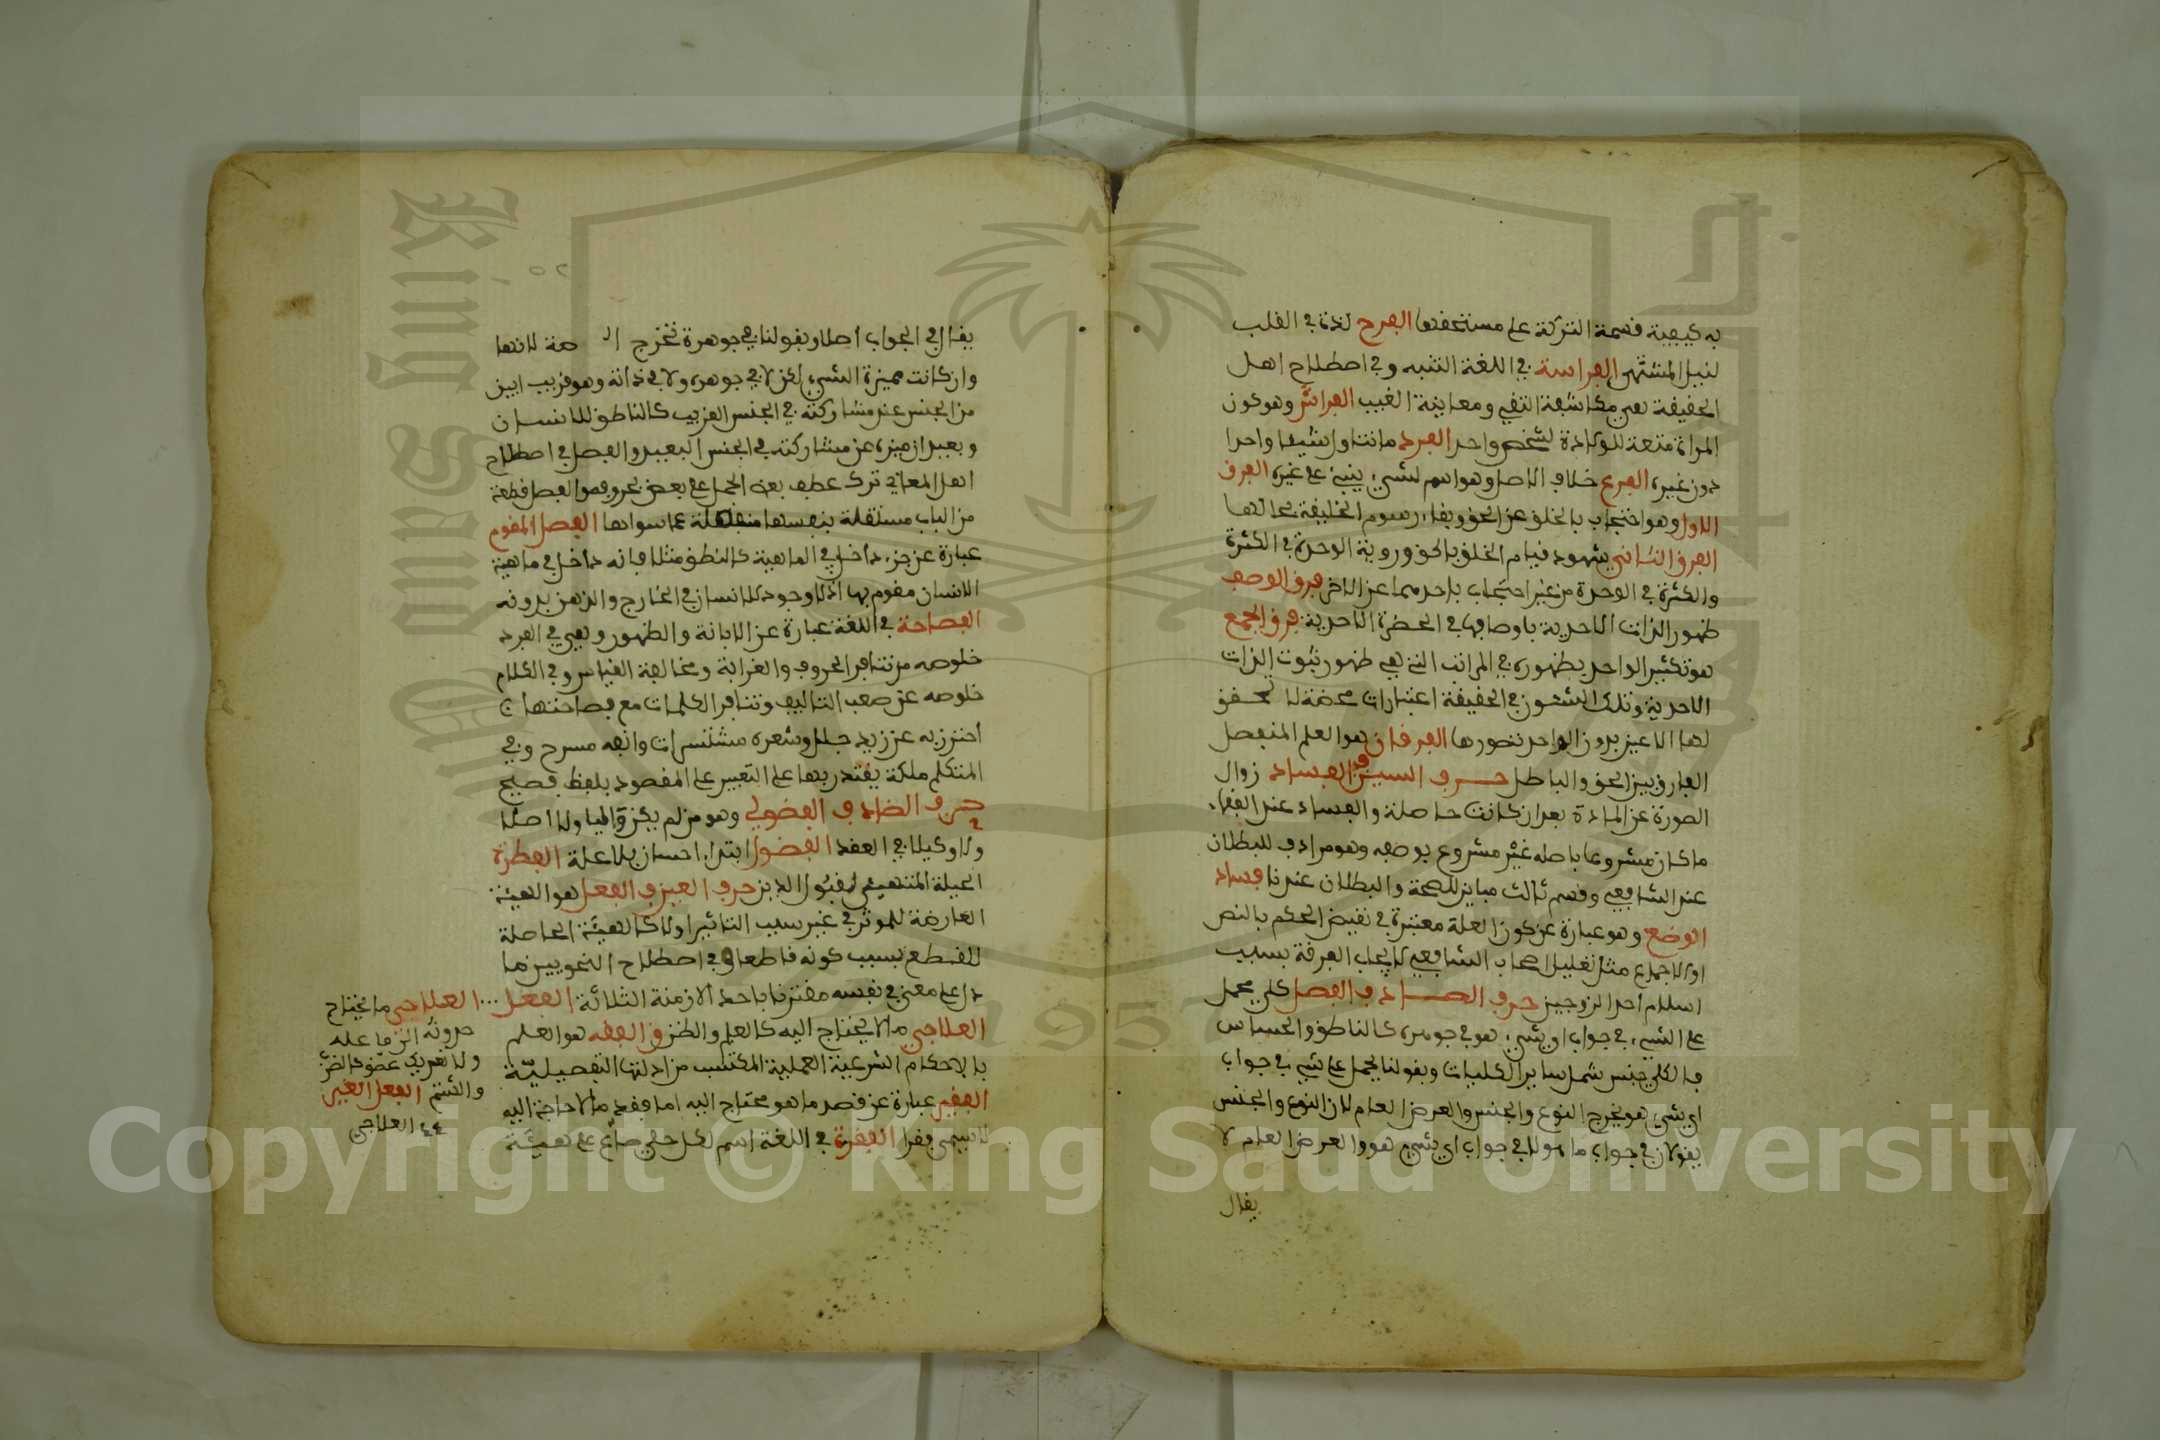 به كيفية قسمة التركة على مستحقها الفرح لذة في القلب
لنيل المشتهى الفراسة في اللغة التثبه وفي اصطلاح اهل
الحقيقة هي مكاشفة اليقين ومعاينة الغيب الفراش وهو كون
المراة متعة للولادة لشخص واحد الفرد ما تناول شيئا واحدا
دون غيره الفرع خلاف الاصل وهو اسم لشيء يبنى على غيره الفرق
الاول وهو احتجاب بالخلق عن الحق وبقاء رسوم الخليقة بحالها
الفرق الثاني شهود قيام الخلق بالحق وروية الوحدة في الكثرة
والكثرة في الوحدة من غير احتجاب باحدهما عن الاخر فرق الوصف
ظهور الذات الاحدية باوصافها في الحضرة الاحدية فرق الجمع
هو تكثير الواحد بظهوره في المراتب التي هي ظهور شؤن الذات
الاحدية وتلك الشئون في الحقيقة اعتبارات محضة لا تحقق
لها الا عند بروز الواحد بصورها الفرقان هو العلم المتفصل
الفارق بين الحق والباطل حرف السين ف الفساد زوال
الصورة عن المادة بعد ان كانت حاصلة والفساد عند الفقهاء
ما كان مشروعا باصله غير مشروع بوصفه وهو مرادف للبطلان
عند الشافعي وقسم ثالث مباين للصحة والبطلان عندنا فساد
الوضع وهو عبارة عن كون العلة معتبرة في نقيض الحكم بالنص
او الاجماع مثل تعليل اصحاب الشافعي لايجاب الفرقة بسبب
اسلام احد الزوجين حرف الصاد ف الفصل كلي يحمل
على الشيء في جواب اي شيء هو في جوهره كالناطق والحساس
فالكلي جنس شمل ساير الكليات وبقولنا يحمل على شيء في جواب
اي شيء هو يخرج النوع والجنس والعرض العام لان النوع والجنس
يقولان في جواب ما هو لا في جواب اي شيء هو والعرض العام لا
يقال
٥٢
يقال في الجواب اصلا وبقولنا في جوهره تخرج الـ صة لانها
وان كانت مميزة للشيء لكن لا في جوهره ولا في ذاته وهو قريب ان ميز
من الجنس عن مشاركته في الجنس القريب كالناطق للانسان
وبعيد ان ميزه عن مشاركته في الجنس البعيد والفصل في اصطلاح
اهل المعاني ترك عطف بعض الجمل على بعض بحروفه والفصل قطعة
من الباب مستقلة بنفسها منفصلة عما سواها الفصل المقوم
عبارة عن جزء داخل في الماهية كالنطق مثلا فانه داخل في ماهية
الانسان مقوم بها اذ لا وجود للانسان في الخارج والذهن بدونه
الفصاحة في اللغة عبارة عن الابانة والظهور وهي في المفرد
خلوصه من تنافر الحروف والغرابة ومخالفة القياس وفي الكلام
خلوصه عن ضعف التاليف وتنافر الكلمات مع فصاحتها
احترز به عن زيد جلل وشعره مستشزرات وانفه مسرج وفي
المتكلم ملكة يقتدر بها على التعبير على المقصود بلفظ فصيح
حرف الضاد ف الفضولي وهو من لم يكن وليا ولا اصلا
ولا وكيلا في العقد الفضول ابتداء احسان بلا علة الفطرة
الجبلة المتهيئة لقبول الدين حرف العين ف الفعل هو الهيئة
العارضة للموثر في غير بسبب التاثير اولا كالهيئة الحاصلة
للقطع بسبب كونه قاطعا وفي اصطلاح النحويين ما
دل على معنى في نفسه مقترنا باحد الازمنة الثلاثة الفعل
العلاجي ما لا يحتاج اليه كالعلم والظن ف الفقه هو العلم
بالاحكام الشرعية العملية المكتسب من ادلتها التفصيلية
الفقر عبارة عن فقد ما هو محتاج اليه اما فقد ما لا حاجة اليه
لا يسمى فقرا الفقرة في اللغة اسم لكل حلي صاغ على هيئة
العلاجي ما يحتاج
حدوثه الى
ولا تحريك عضو كالضرب
والشتم الفعل الغير
العلاجي
King Saud University
1957
Copyright © King Saud University